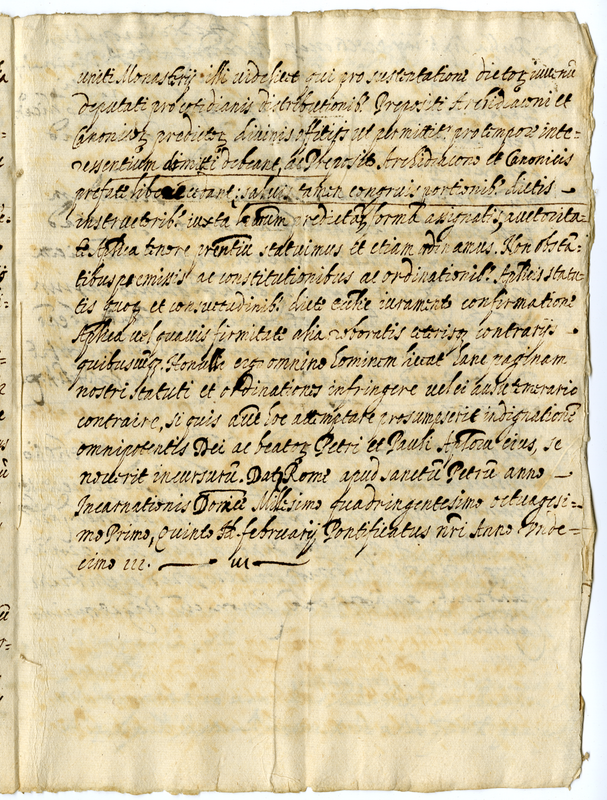 uniti Monasterij illi videlicet qui pro sustentatione dictoꝝ iuvenū
deputati pro cotidianis distributionibꝰ Prepositi Archidiaconi et
Canonicoꝝ predictoꝝ divinis offitijs ut permittitꝰ pro tempore inte=
ressentium dimitti debeant, ac Preposito Archidiacono et Canonicis
prefatis libere salvis tamen congruis portionibꝰ dictis
instructoribꝰ iuxta predictā formā assignatis, auctorita=
te Aplica tenore prēntiū statuimus et etiam ordinamus. Non obstā=
tibus premissis ac constitutionibus ac ordinationibꝰ Aplicis statu=
tis quoꝝ et consuetudinibꝰ dicte ecclie iuramento confirmatione
Aplica vel quavis firmitate alia roboratis ceterisqꝫ contrarijs
quibuscūqꝫ. Nonulli ergo omnino hominum liceat hanc paginam
nostri statuti et ordinationis infringere vel ei ausu temerario
contraire, si quis autē hoc attemptare presumpserit indignationē
omnipotentis Dei ac beatoꝝ Petri et Pauli Aplorū eius, se
noverit incursurū. Datꝭ Rome apud sanctū Petrū anno
Incarnationis Domce Millesimo quadringentesimo octuagesi=
mo Primo, Quinto Id. februarij Pontificatus nri Anno Unde=
cimo